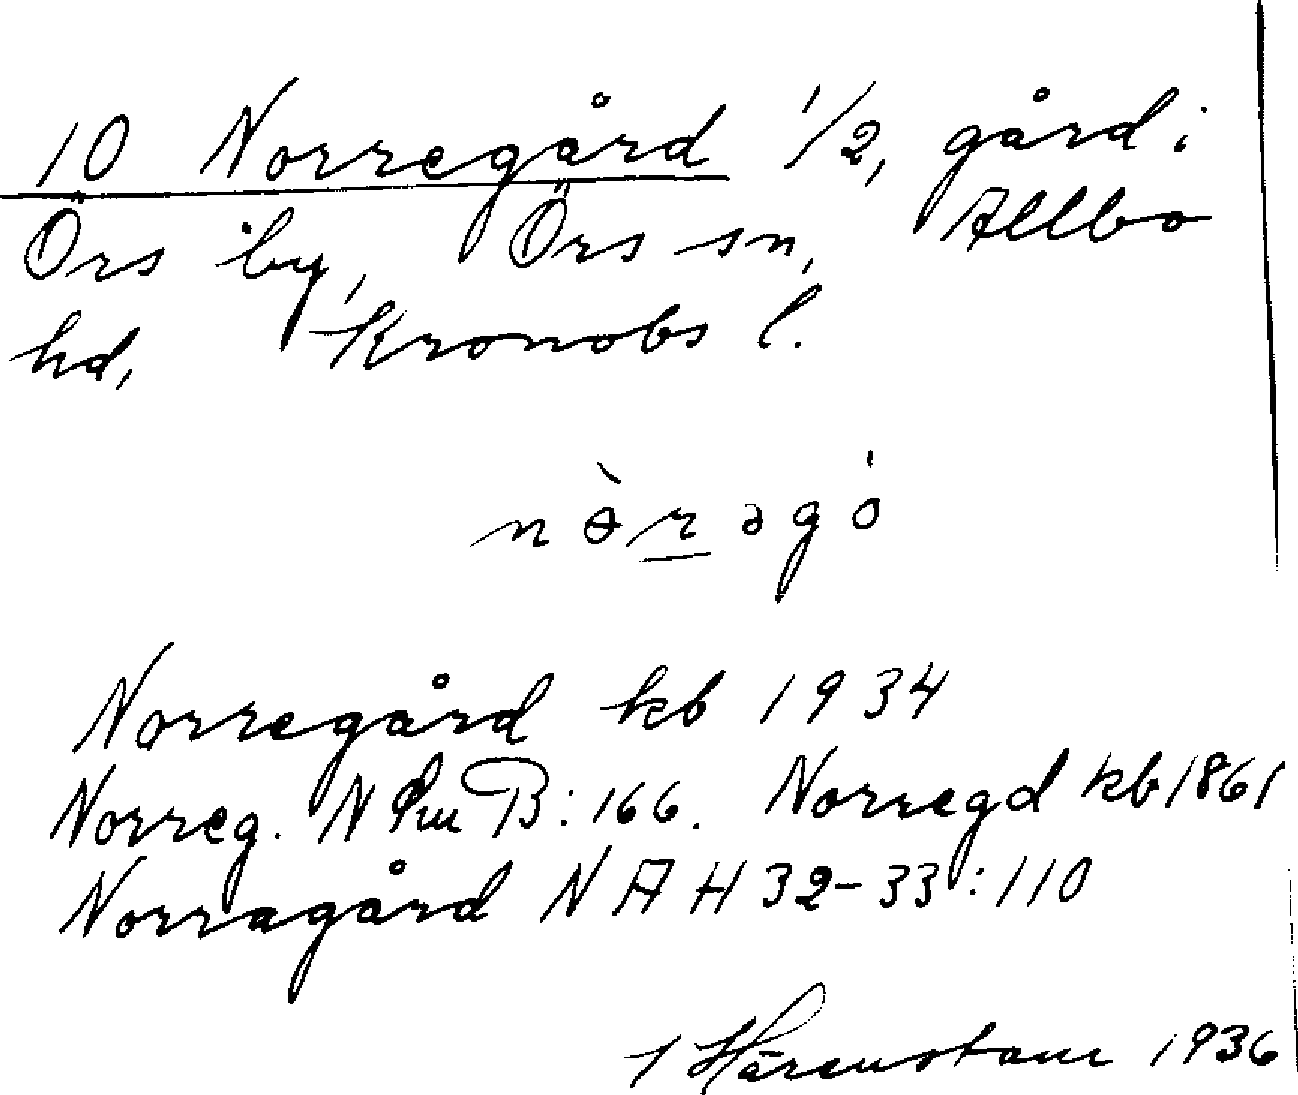 10 Norregård 1/2, gård i
Örs by, Örs sn, Allbo
hd, Kronobs l.
nɵ̀rəgó
Norregård kb 1934
Norreg. N B:166. Norregd kb 1861
Norragård N A H 32-33:110
Härenstam 1936